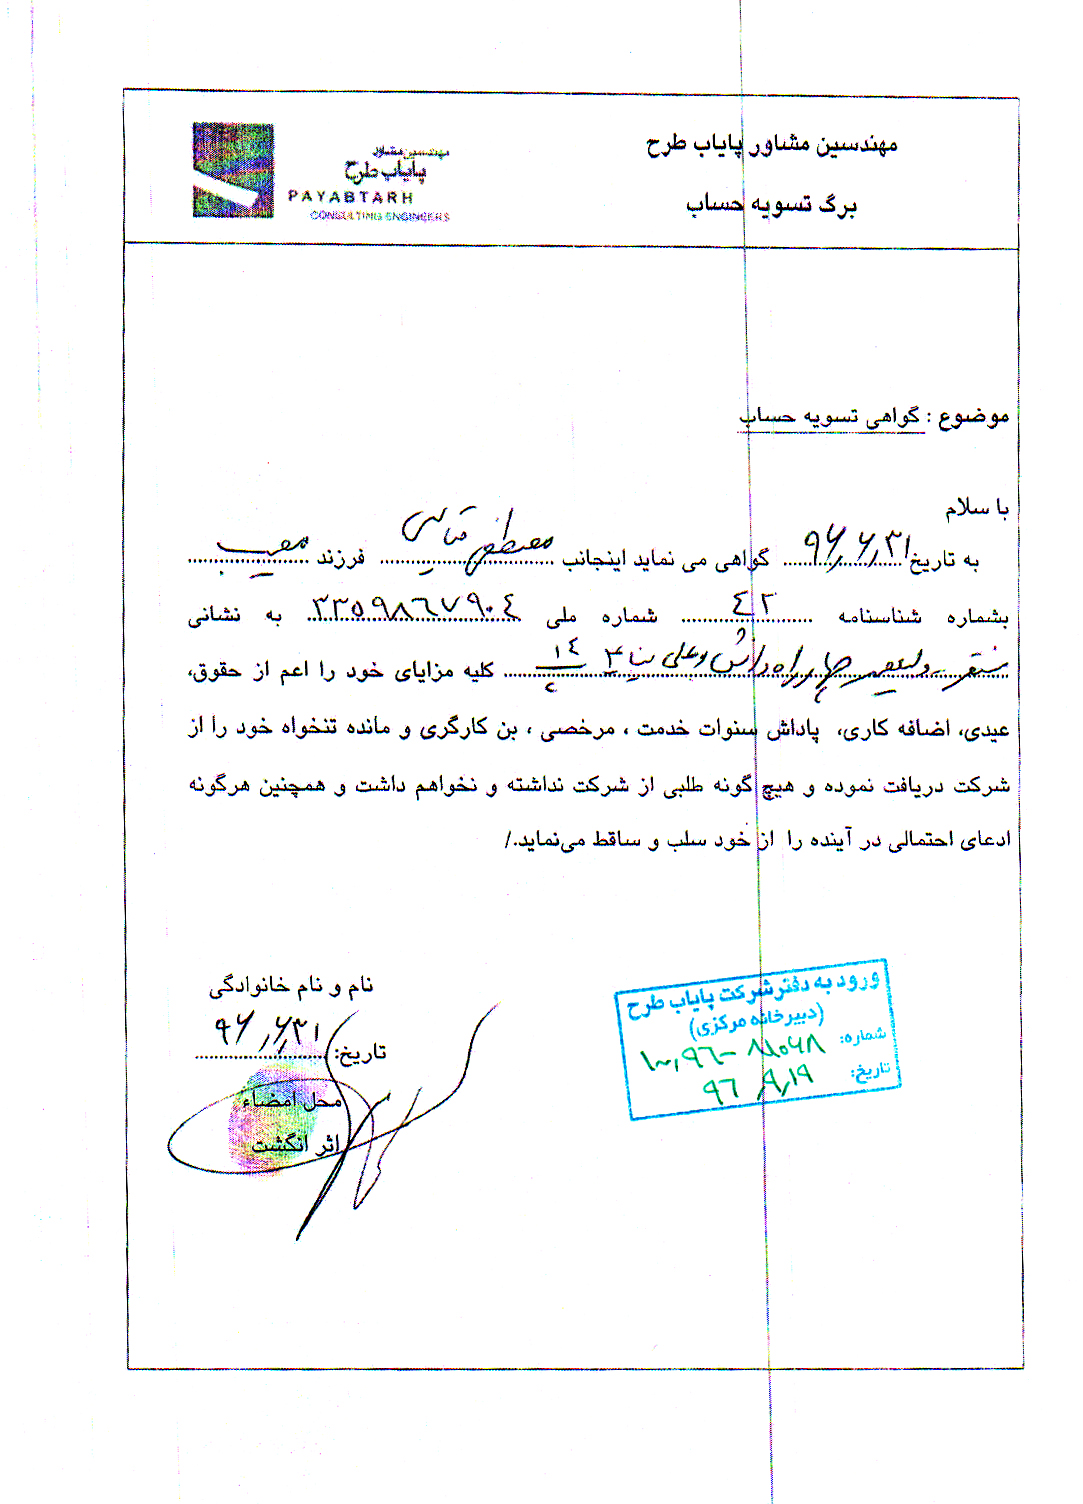 مهندسین مشاور پایاب طرح
برگ تسویه حساب
مهندسین مشاور
پایاب طرح
PAYABTARH
CONSULTING ENGINEERS
موضوع : گواهی تسویه حساب
با سلام
به تاریخ ۹۶,۶,۳۱ گواهی می نماید اینجانب مصطفی فرزند
بشماره شناسنامه ۴۲ شماره ملی ۳۳۵۹۸۶۷۹۰۴ به نشانی
کلیه مزایای خود را اعم از حقوق،
عیدی، اضافه کاری، پاداش سنوات خدمت ، مرخصی ، بن کارگری و مانده تنخواه خود را از
شرکت دریافت نموده و هیچ گونه طلبی از شرکت نداشته و نخواهم داشت و همچنین هرگونه
ادعای احتمالی در آینده را از خود سلب و ساقط می‌نماید./
نام و نام خانوادگی
تاریخ: ۹۶,۶,۳۱
محل امضاء
اثر انگشت
ورود به دفتر شرکت پایاب طرح
(دبیرخانه مرکزی)
شماره:
تاریخ: ۹۶,۹,۱۹